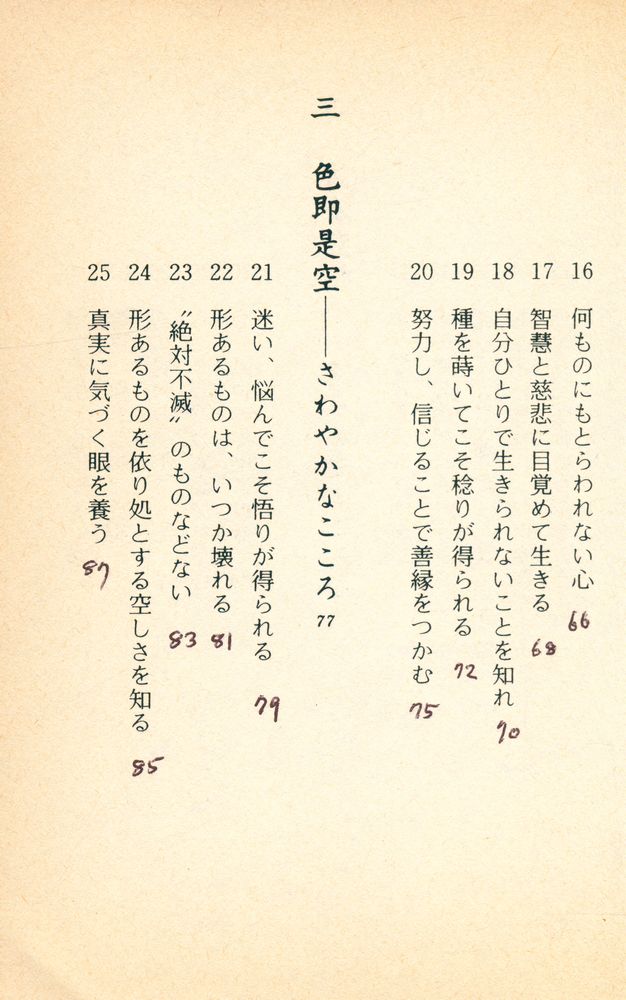 16 何ものにもとらわれない心 66
17 智慧と慈悲に目覚めて生きる 68
18 自分ひとりで生きられないことを知れ 70
19 種を蒔いてこそ稔りが得られる 72
20 努力し、信じることで善縁をつかむ 75
三 色即是空──さわやかなこころ 77
21 迷い、悩んでこそ悟りが得られる 79
22 形あるものは、いつか壊れる 81
23 〝絶対不滅〟のものなどない 83
24 形あるものを依り処とする空しさを知る 85
25 真実に気づく眼を養う 87